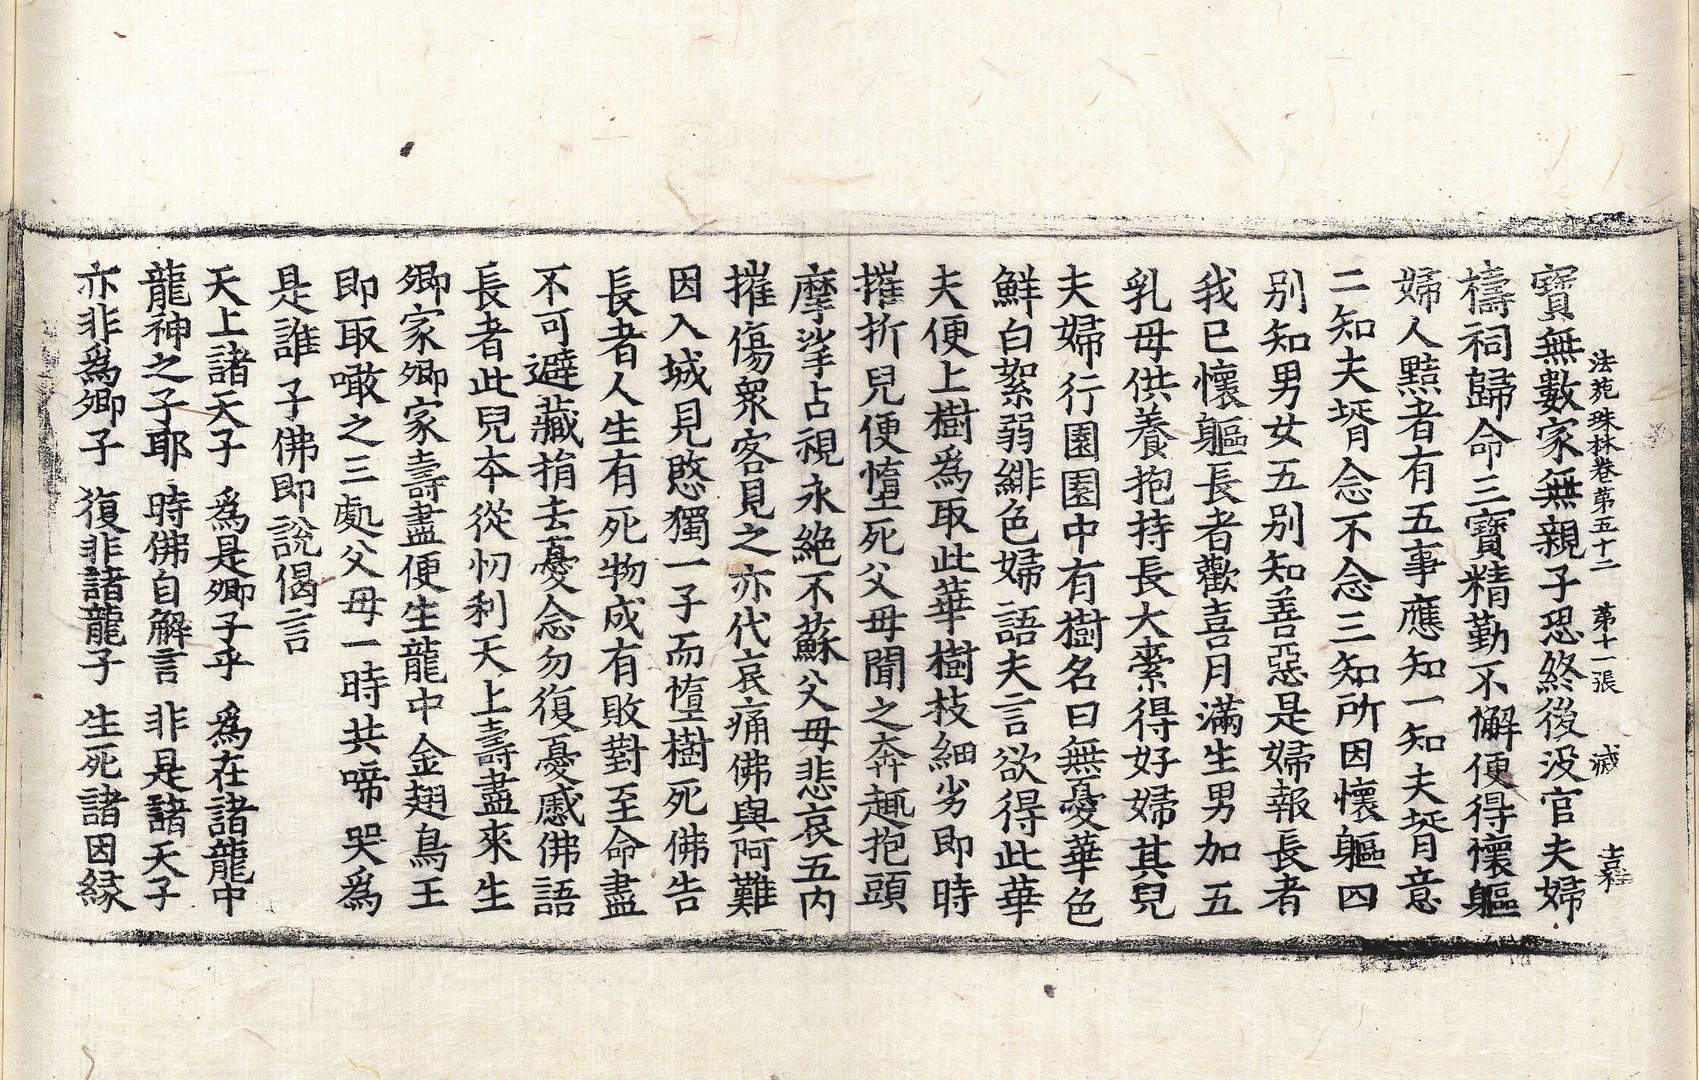 法苑珠林卷第五十二　第十一張　㽵
寶無數家無親子恐終後没官夫婦
禱祠歸命三寶精勤不懈便得懷軀
婦人黠者有五事應知一知夫壻意
二知夫壻念不念三知所因懷軀四
别知男女五别知善惡是婦報長者
我已懷軀長者歡喜月滿生男加五
乳母供養抱持長大索得好婦其兒
夫婦行園園中有樹名曰無憂華色
鮮白絮弱緋色婦語夫言欲得此華
夫便上樹爲取此華樹枝細劣即時
摧折兒便墮死父母聞之奔趣抱頭
摩挲占視永絶不蘇父母悲哀五内
摧傷衆客見之亦代哀痛佛與阿難
因入城見愍獨一子而墮樹死佛告
長者人生有死物成有敗對至命盡
不可避藏捐去憂念勿復憂慼佛語
長者此兒夲從忉利天上壽盡來生
卿家卿家壽盡便生龍中金翅鳥王
即取噉之三處父母一時共啼哭爲
是誰子佛即説偈言
天上諸天子　爲是卿子乎　爲在諸龍中
龍神之子耶　時佛自解言　非是諸天子
亦非爲卿子　復非諸龍子　生死諸因縁